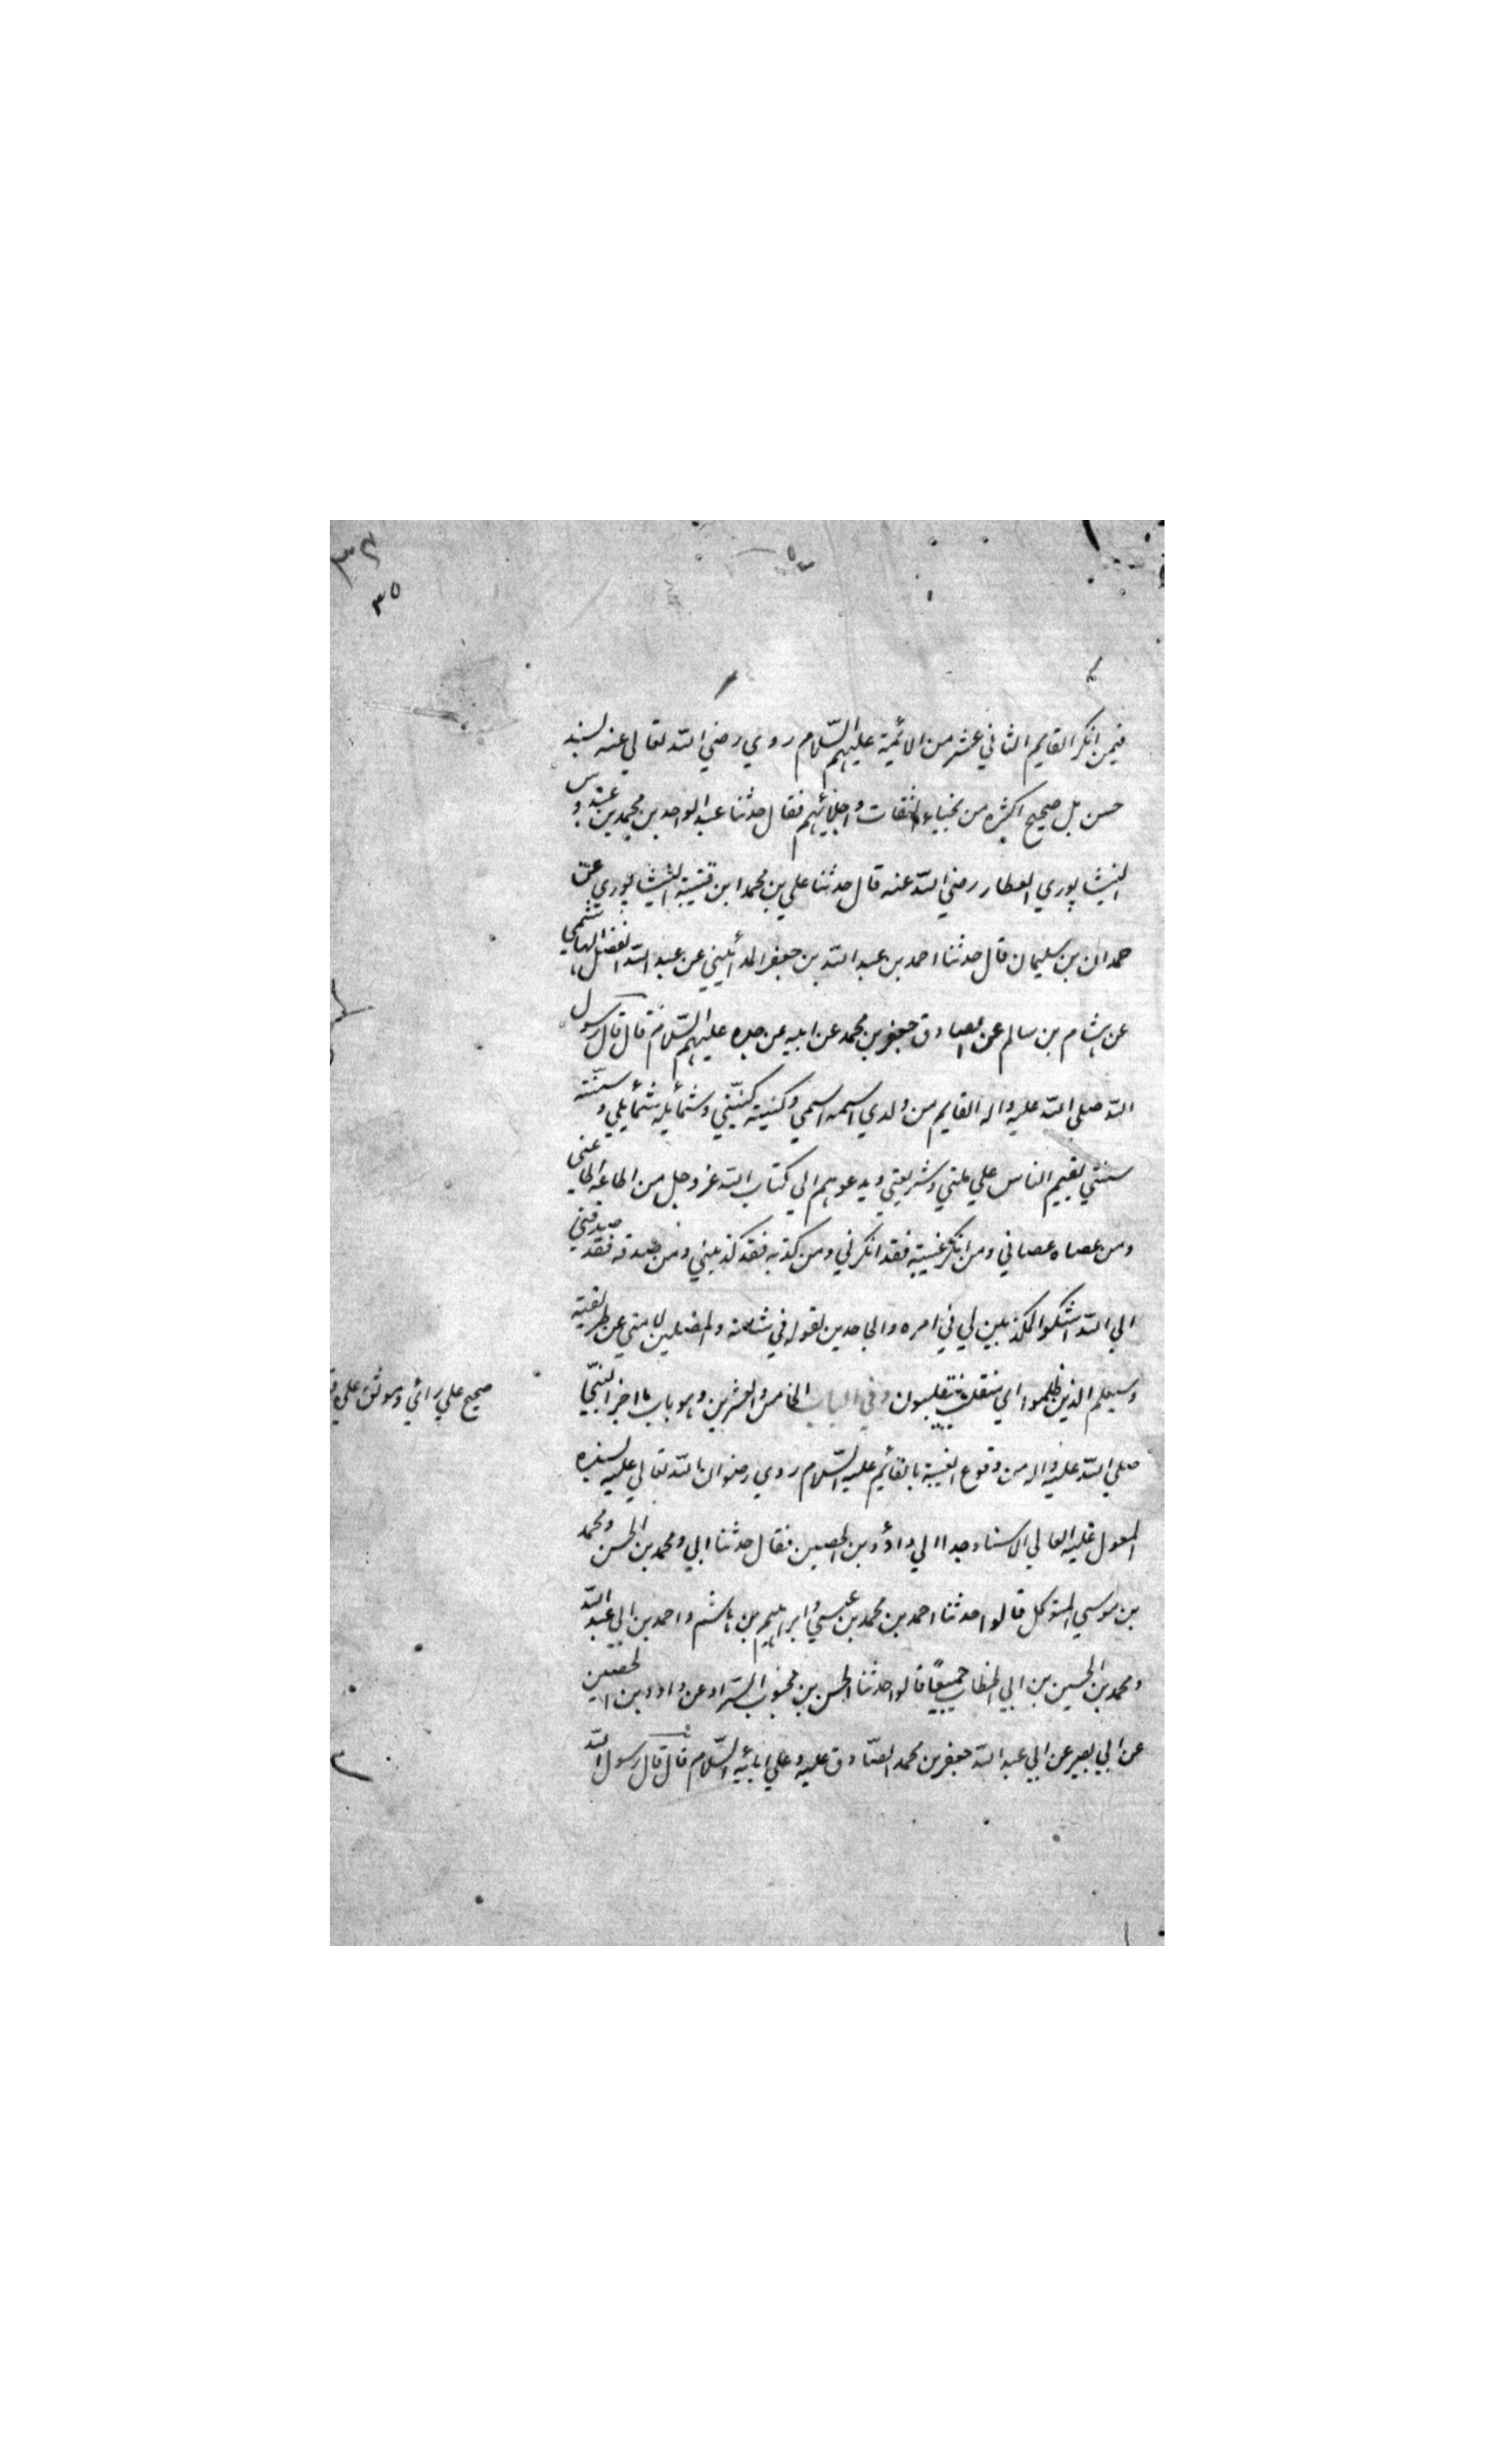 ٣٤
٣٥
فيمن انكر القايم الثاني عشر من الائمية عليهم السّلام روي رضي اللّه تعالي عنه بسند
حسن بل صحيح اكثره من نجباء الثقات و اجلائهم فقال حدثنا عبد الواحد بن محمد بن عبدوس
النيشاپوري العطار رضي اللّه عنه قال حدثنا علي بن محمد ابن قتيبة النيشاپوري عن
حمدان بن سليمان قال حدثنا احمد بن عبد اللّه بن جعفر المدائيني عن عبد اللّه الفضل الهاشمي
عن هشام بن سالم عن الصادق جعفر بن محمد عن ابيه عن جده عليهم السّلام قال قال رسول
اللّه صلي اللّه عليه واله القايم من ولدي اسمه اسمي و كنيته كنيّتي و شمائيله شمائيلي و سنّته
سنّتي يقيم الناس علي ملتي و شريعتي و يدعوهم الي كتاب اللّه عز وجل من اطاعه اطاعني
ومن عصاه عصاني ومن انكر غيبته فقد انكرني ومن كذبه فقد كذبني ومن صدقه فقد صدقني
الي اللّه اشكوا المكذبين لي في امره والجاحدين لقوله في شانه والمضلين لامتي عن طريقته
وسيعلم الذين ظلموا اي منقلب ينقلبون وفي الباب الخامس والعشرين وهو باب ما اخبر النبيّ
صلي اللّه عليه واله من وقوع الغيبة بالقائيم عليه السّلام روي رضوان اللّه تعالي عليه بسنده
المعول عليه العالي الاسناد جدا الي داؤد بن الحصين فقال حدثنا ابي و محمد بن الحسن و محمد
بن موسي المتوكل قالوا حدثنا احمد بن محمد بن عيسي و ابراهيم بن هاشم و احمد بن ابي عبد اللّه
و محمد بن الحسين بن ابي الخطاب جميعًا قالوا حدثنا الحسن بن محبوب السّراد عن داود بن الحصين
عن ابي بصير عن ابي عبد اللّه جعفر بن محمد الصّادق عليه و علي ابائيه السّلام قال قال رسول اللّه
صحيح علي رائي و موثق علي